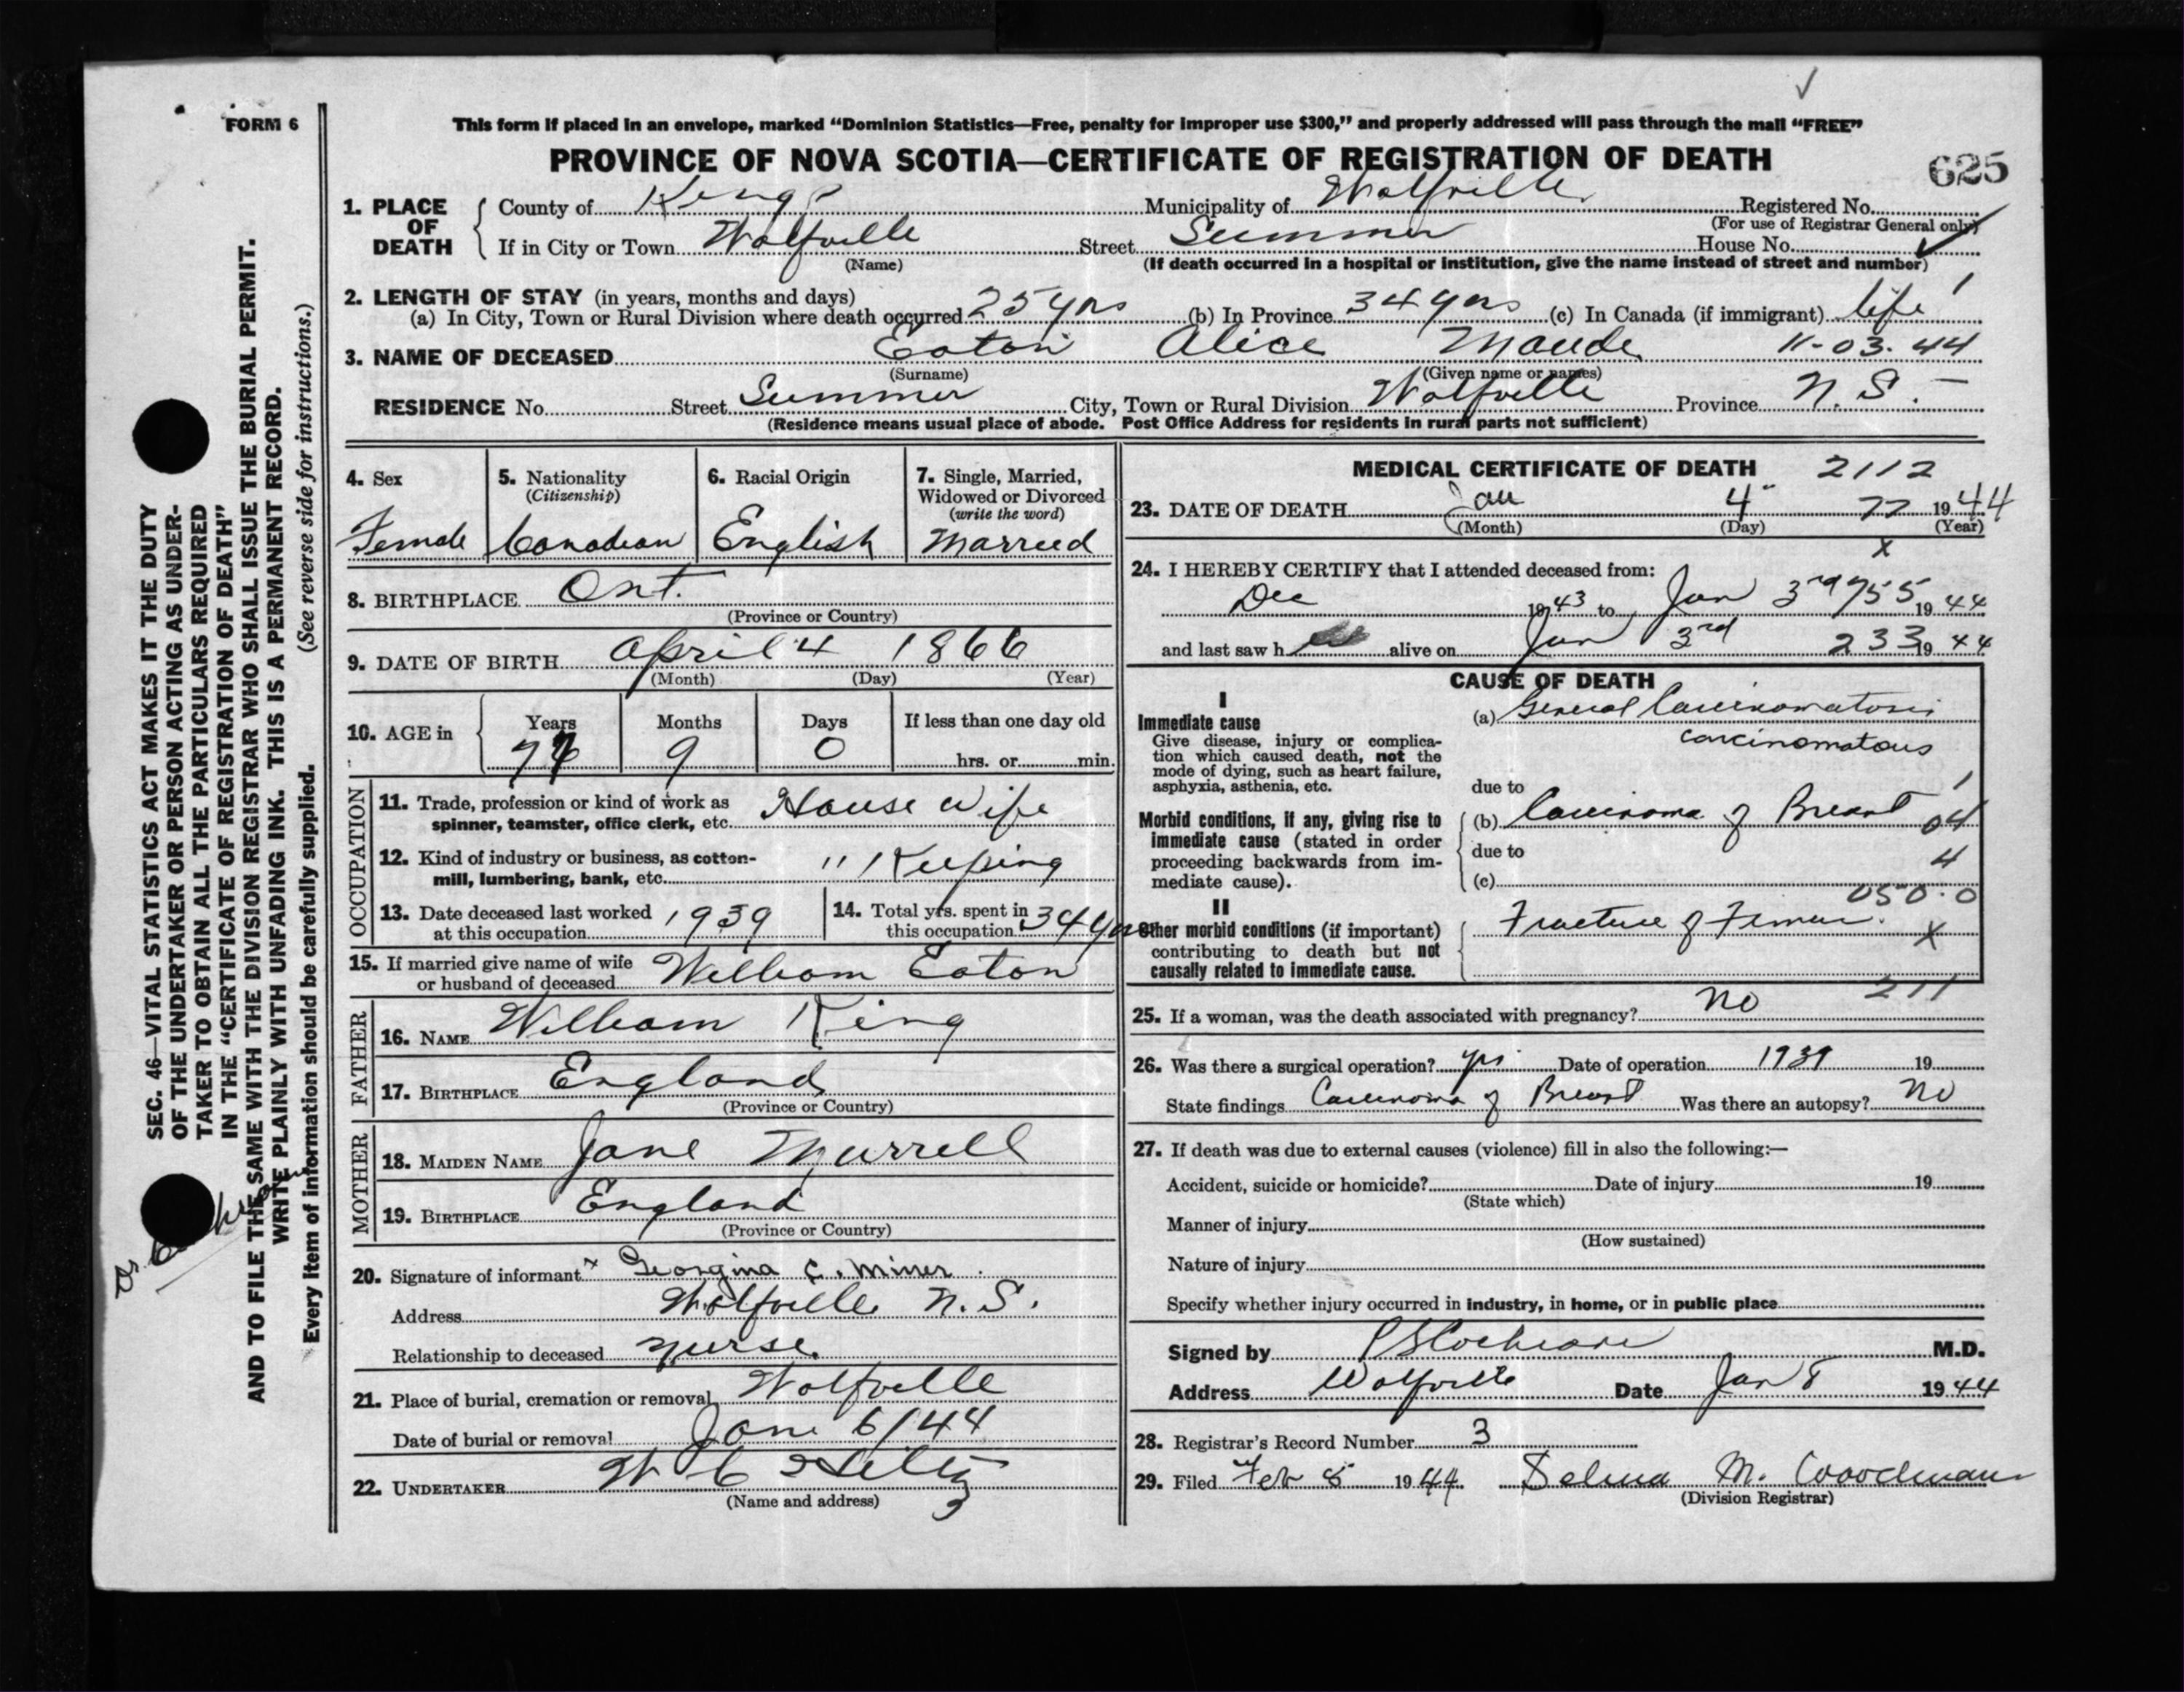 FORM 6
This form if placed in an envelope, marked “Dominion Statistics—Free, penalty for improper use $300,” and properly addressed will pass through the mail “FREE”
PROVINCE OF NOVA SCOTIA—CERTIFICATE OF REGISTRATION OF DEATH
625
1. PLACE OF DEATH
County of Kings Municipality of Wolfville Registered No.
(For use of Registrar General only)
If in City or Town Wolfville Street Summer House No.
(Name) (If death occurred in a hospital or institution, give the name instead of street and number)
2. LENGTH OF STAY (in years, months and days)
(a) In City, Town or Rural Division where death occurred 25 yrs (b) In Province 34 yrs (c) In Canada (if immigrant) life 1
3. NAME OF DECEASED Eaton Alice Maude 11-03. 44
(Surname) (Given name or names)
RESIDENCE No. Street Summer City, Town or Rural Division Wolfville Province N. S.
(Residence means usual place of abode. Post Office Address for residents in rural parts not sufficient)
4. Sex
Female
5. Nationality
(Citizenship)
Canadian
6. Racial Origin
English
7. Single, Married,
Widowed or Divorced
(write the word)
Married
8. BIRTHPLACE Ont.
(Province or Country)
9. DATE OF BIRTH April 4 1866
(Month) (Day) (Year)
10. AGE in
Years Months Days If less than one day old
77 9 0 hrs. or min.
OCCUPATION
11. Trade, profession or kind of work as
spinner, teamster, office clerk, etc. House wife
12. Kind of industry or business, as cotton-
mill, lumbering, bank, etc. " Keeping
13. Date deceased last worked
at this occupation 1939
14. Total yrs. spent in
this occupation 34 yrs
15. If married give name of wife
or husband of deceased William Eaton
FATHER
16. NAME William King
17. BIRTHPLACE England
(Province or Country)
MOTHER
18. MAIDEN NAME Jane Murrell
19. BIRTHPLACE England
(Province or Country)
20. Signature of informant x Georgina C. Miner
Address Wolfville N. S.
Relationship to deceased nurse
21. Place of burial, cremation or removal Wolfville
Date of burial or removal Jan 6/44
22. UNDERTAKER W C
(Name and address)
MEDICAL CERTIFICATE OF DEATH 2112
23. DATE OF DEATH Jan 4 77 1944
(Month) (Day) (Year)
x
24. I HEREBY CERTIFY that I attended deceased from:
Dec 1943 to Jan 3rd 755 1944
and last saw h alive on Jan 3rd 233 1944
CAUSE OF DEATH
I
Immediate cause
Give disease, injury or complica-
tion which caused death, not the
mode of dying, such as heart failure,
asphyxia, asthenia, etc.
(a) General Carcinomatosis
carcinomatous
due to 1
Morbid conditions, if any, giving rise to
immediate cause (stated in order
proceeding backwards from im-
mediate cause).
(b) Carcinoma of Breast 04
due to 4
(c)
050.0
II
Other morbid conditions (if important)
contributing to death but not
causally related to immediate cause.
Fracture of Femur. X
211
25. If a woman, was the death associated with pregnancy? no
26. Was there a surgical operation? yes Date of operation 1939 19
State findings Carcinoma of Breast Was there an autopsy? No
27. If death was due to external causes (violence) fill in also the following:—
Accident, suicide or homicide? Date of injury 19
(State which)
Manner of injury
(How sustained)
Nature of injury
Specify whether injury occurred in industry, in home, or in public place
Signed by Cochrane M.D.
Address Wolfville Date Jan 8 1944
28. Registrar's Record Number 3
29. Filed Feb 8 1944 Selma M. Woodman
(Division Registrar)
SEC. 46—VITAL STATISTICS ACT MAKES IT THE DUTY
OF THE UNDERTAKER OR PERSON ACTING AS UNDER-
TAKER TO OBTAIN ALL THE PARTICULARS REQUIRED
IN THE “CERTIFICATE OF REGISTRATION OF DEATH”
AND TO FILE THE SAME WITH THE DIVISION REGISTRAR WHO SHALL ISSUE THE BURIAL PERMIT.
WRITE PLAINLY WITH UNFADING INK. THIS IS A PERMANENT RECORD.
Every item of information should be carefully supplied. (See reverse side for instructions.)